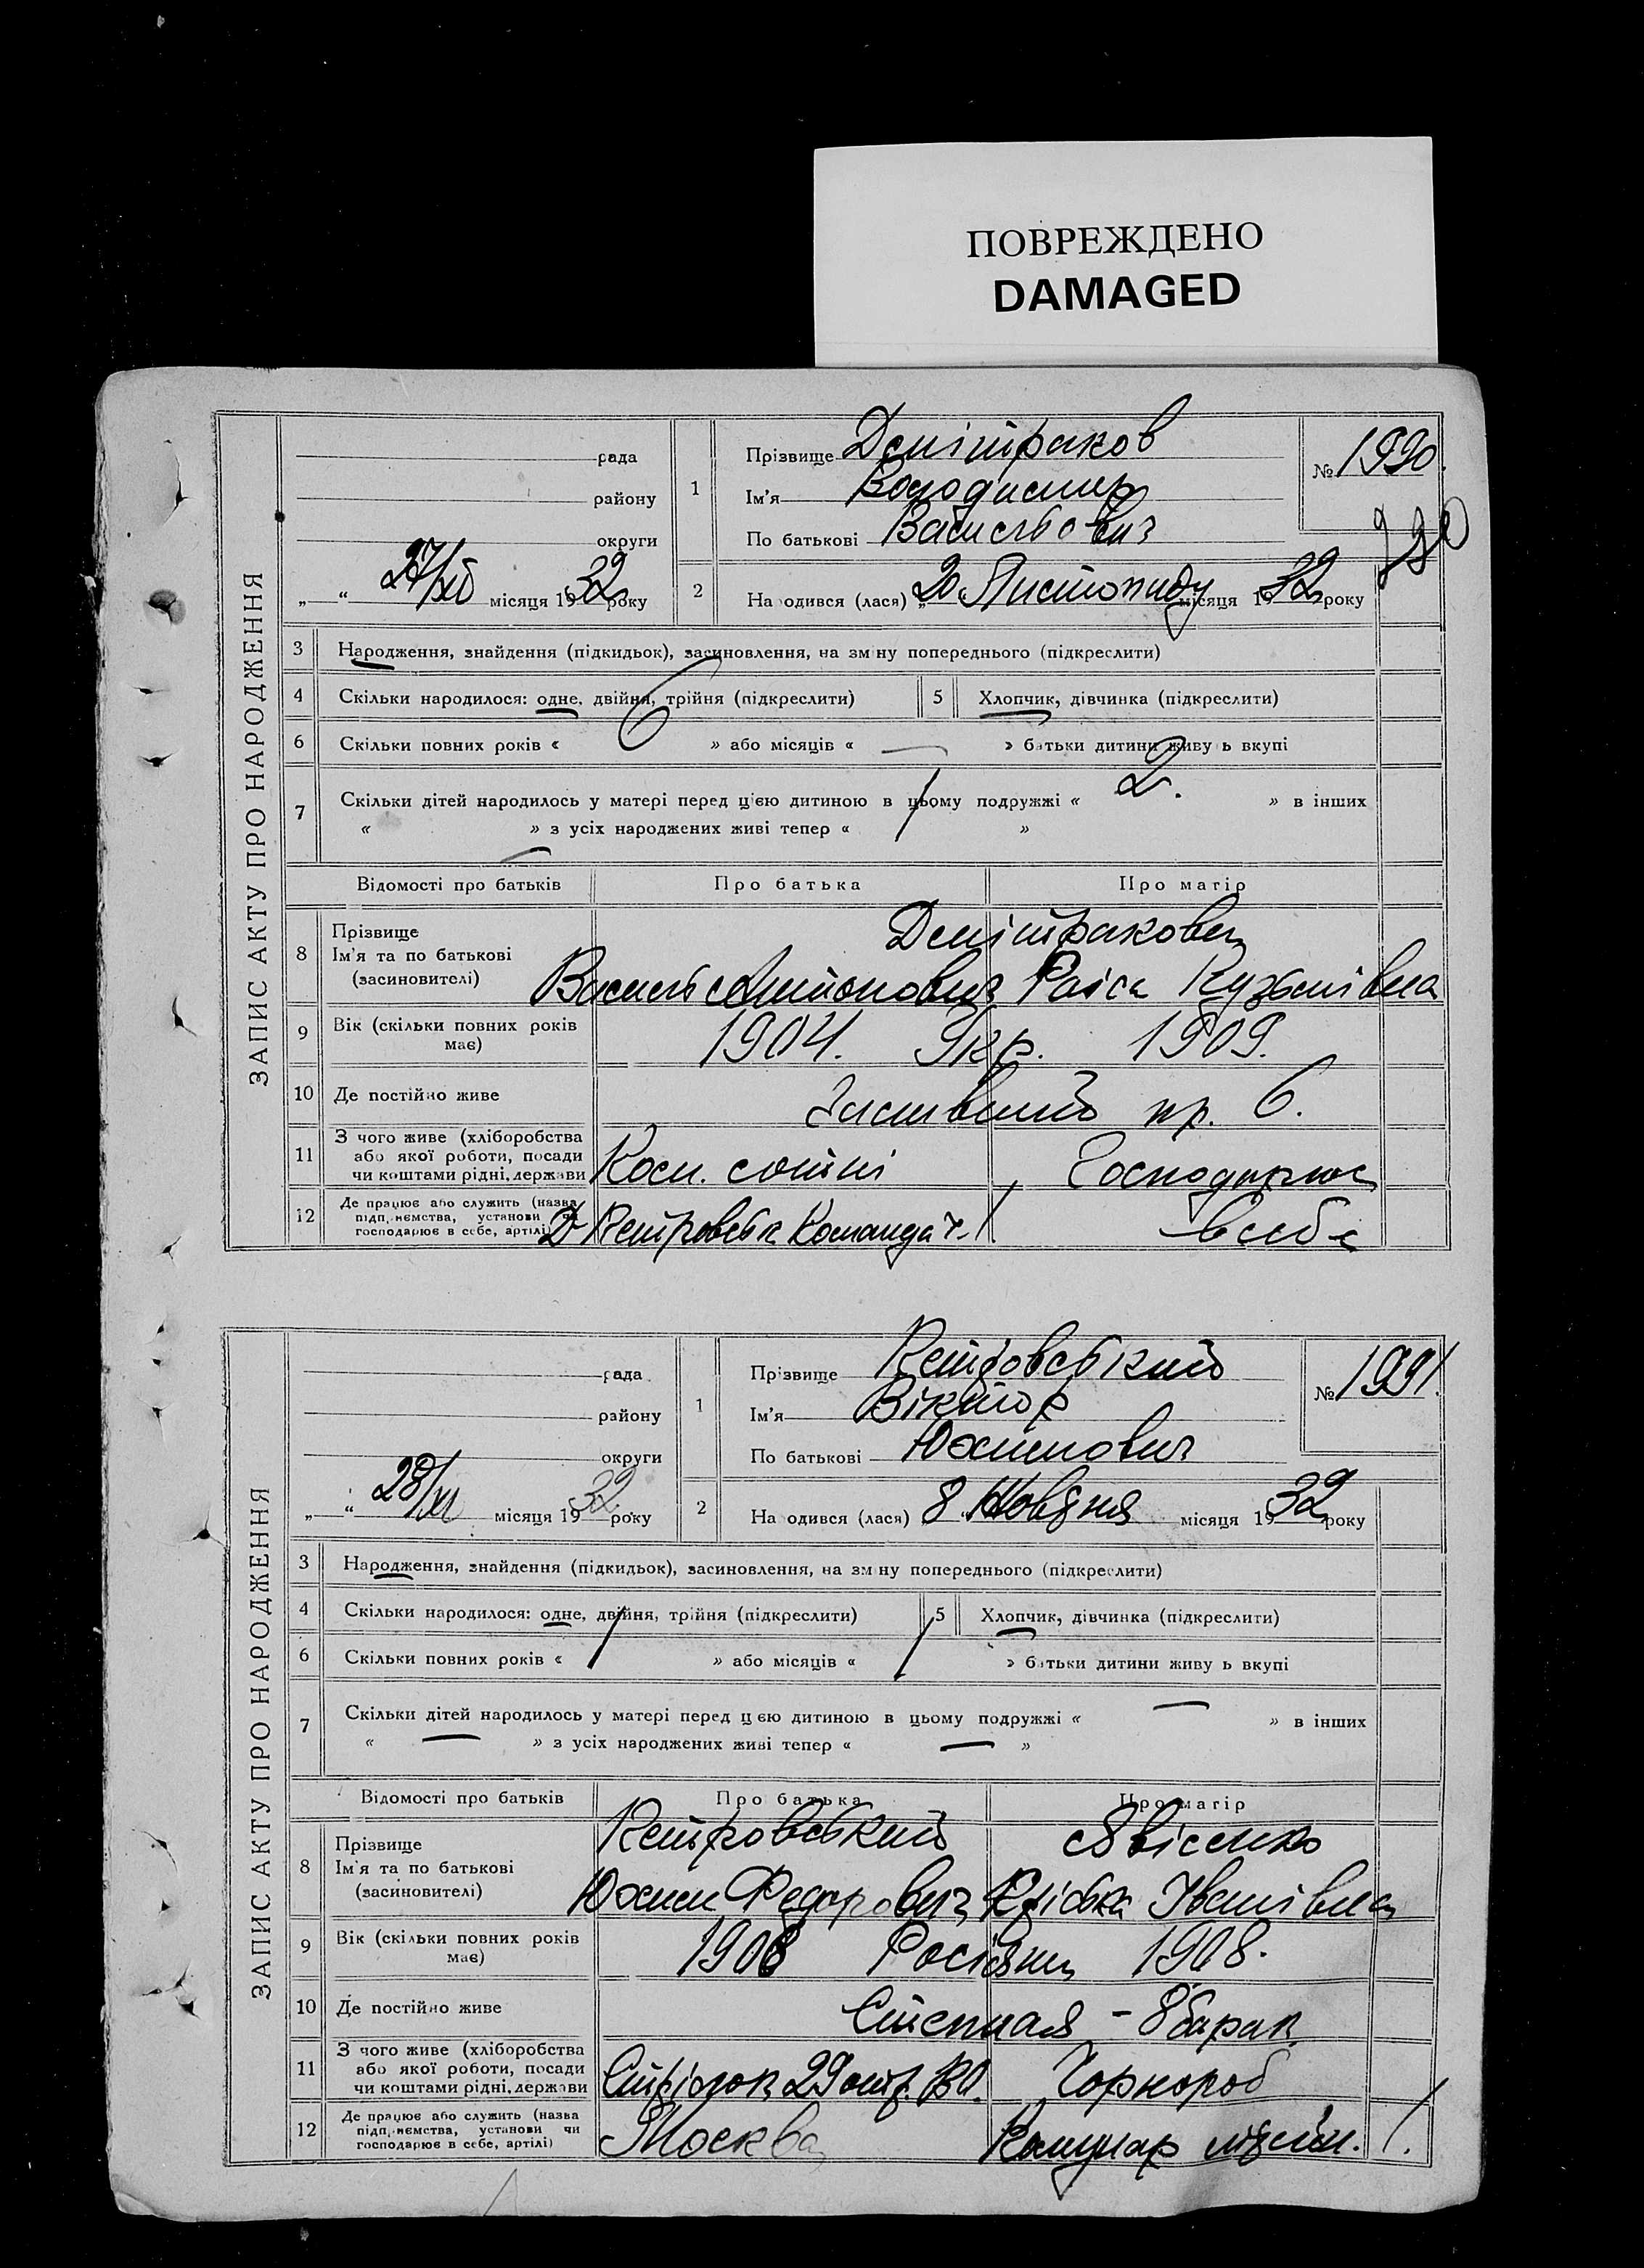 ПОВРЕЖДЕНО
DAMAGED
ЗАПИС АКТУ ПРО НАРОДЖЕННЯ
рада
району
округи
„ “ 27/XI місяця 1932 року
1
Прізвище Демітраков
Ім'я Володимир
По батькові Васильович
№ 1990.
990
2
Народився (лася) „20 Листопаду місяця 1932 року
3 Народження, знайдення (підкидьок), засиновлення, на зміну попереднього (підкреслити)
4 Скільки народилося: одне, двійня, трійня (підкреслити)
5 Хлопчик, дівчинка (підкреслити)
6 Скільки повних років « 6 » або місяців « — » батьки дитини живуть вкупі
7 Скільки дітей народилось у матері перед цією дитиною в цьому подружжі « 2. » в інших
« » з усіх народжених живі тепер « »
Відомості про батьків Про батька Про матір
8 Прізвище
Ім'я та по батькові
(засиновителі)
Демітракови
Василь Антонович Раіса Кузьмівна
9 Вік (скільки повних років має)
1904. Укр. 1909.
10 Де постійно живе
пр. 6.
11 З чого живе (хліборобства
або якої роботи, посади
чи коштами рідні, держави
Ком. сотні Господарює
12 Де працює або служить (назва
підприємства, установи чи
господарює в себе, артілі)
Д Петровськ Команда ч. всебе
ЗАПИС АКТУ ПРО НАРОДЖЕННЯ
рада
району
округи
„ “ 28/XI місяця 1932 року
1
Прізвище Петровський
Ім'я Віктор
По батькові Юхимович
№ 1991.
2
Народився (лася) 8 Жовтня місяця 1932 року
3 Народження, знайдення (підкидьок), засиновлення, на зміну попереднього (підкреслити)
4 Скільки народилося: одне, двійня, трійня (підкреслити)
5 Хлопчик, дівчинка (підкреслити)
6 Скільки повних років « / » або місяців « / » батьки дитини живуть вкупі
7 Скільки дітей народилось у матері перед цією дитиною в цьому подружжі « — » в інших
« — » з усіх народжених живі тепер « — »
Відомості про батьків Про батька Про матір
8 Прізвище
Ім'я та по батькові
(засиновителі)
Петровський Явісенко
Юхим Федорович Івanівна
9 Вік (скільки повних років має)
1908 Росіяни 1908.
10 Де постійно живе
Степная – 8 барак
11 З чого живе (хліборобства
або якої роботи, посади
чи коштами рідні, держави
Стрілок 29 Чорнороб
12 Де працює або служить (назва
підприємства, установи чи
господарює в себе, артілі)
Москва